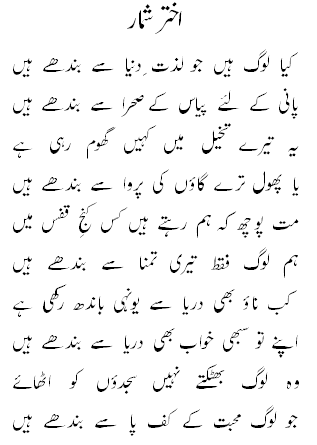 اختر شمار
کیا لوگ ہیں جو لذتِ دنیا سے بندھے ہیں
پانی کے لئے پیاس کے صحرا سے بندھے ہیں
یہ تیرے تخیل میں کہیں گھوم رہی ہے
یا پھول ترے گاؤں کی پروا سے بندھے ہیں
مت پوچھ کہ ہم رہتے ہیں کس کنجِ قفس میں
ہم لوگ فقط تیری تمنا سے بندھے ہیں
کب ناؤ بھی دریا سے یونہی باندھ رکھی ہے
اپنے تو سبھی خواب بھی دریا سے بندھے ہیں
وہ لوگ بھٹکتے نہیں سجدوں کو اٹھائے
جو لوگ محبت کے کف پا سے بندھے ہیں